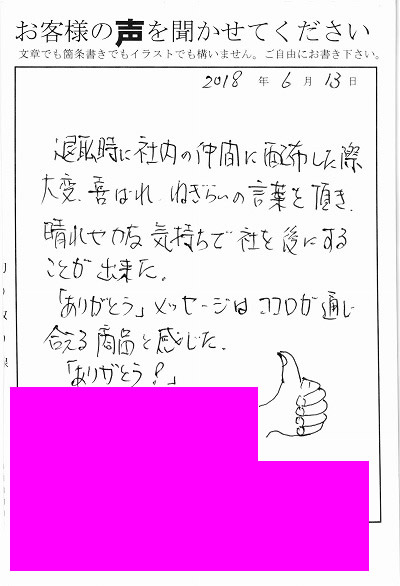 お客様の声を聞かせてください
文章でも箇条書きでもイラストでも構いません。ご自由にお書き下さい。
2018 年 6 月 13 日
退職時に社内の仲間に配布した際
大変、喜ばれ、ねぎらいの言葉を頂き、
晴れやかな気持ちで社を後にする
ことが出来た。
「ありがとう」メッセージはココロが通じ
合える商品と感じた。
「ありがとう!」